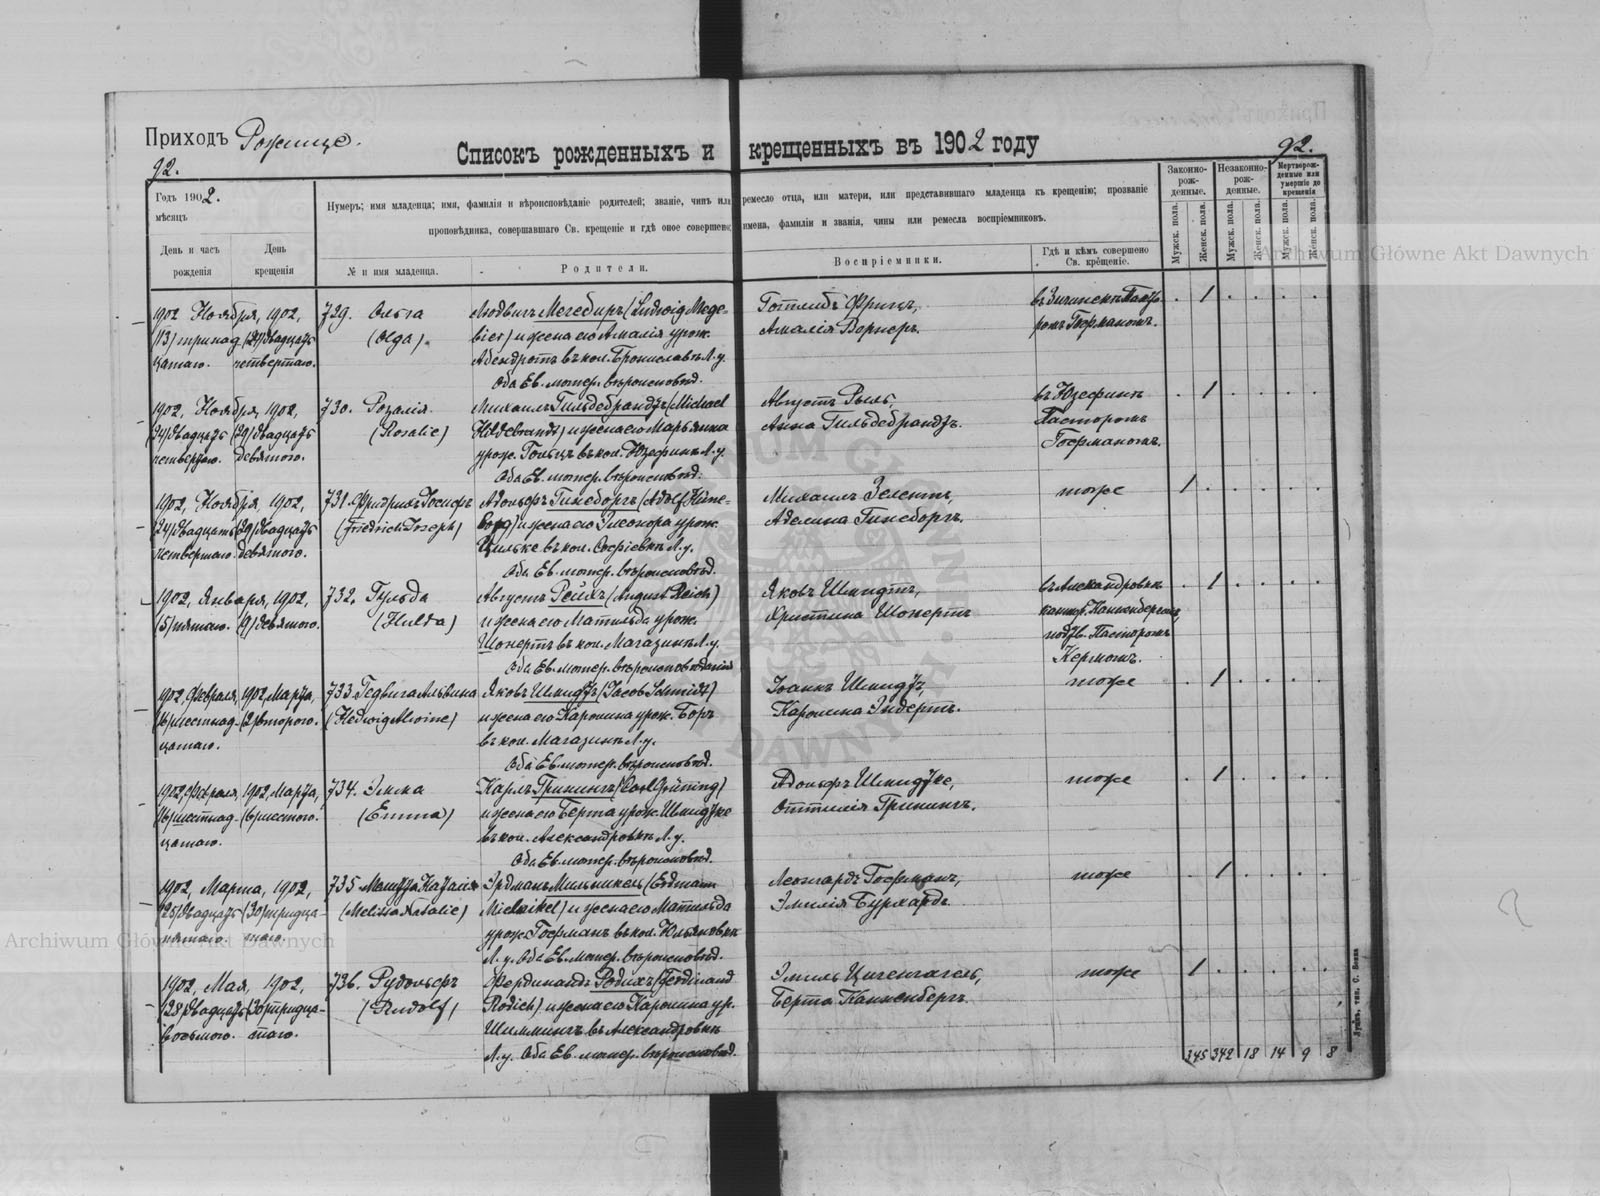 Приходъ Рожище.
Списокъ рожденныхъ и крещенныхъ въ 1902 году
92.
92.
Годъ 1902.
мѣсяцъ
День и часъ рожденія
День крещенія
Нумеръ; имя младенца; имя, фамилія и вѣроисповѣданіе родителей; званіе, чинъ или ремесло отца, или матери, или представившаго младенца къ крещенію; прозваніе
проповѣдника, совершавшаго Св. крещеніе и гдѣ оное совершено; имена, фамиліи и званія, чины или ремесла воспріемниковъ.
№ и имя младенца.
Родители.
Воспріемники.
Гдѣ и кѣмъ совершено Св. крещеніе.
Законно-рож-денные.
Незаконно-рож-денные.
Мертворож-денные или умершіе до крещенія
Мужск. пола.
Женск. пола.
Мужск. пола.
Женск. пола.
Мужск. пола.
Женск. пола.
1902 Ноября, 1902, 729. Ольга Людвигъ Мегебиръ (Ludwig Mege- Готлибъ Фрицъ, 1
(13) тринад (24) двадцать (Olga). bier) и жена его Амалія урож. Амалія Вернеръ. Гофманомъ.
цатаго. четвертаго. въ кол. Брониславкѣ Л. у.
Оба Ев. лютер. вѣроисповѣд.
1902, Ноября, 1902, 730. Розалія. Михаилъ Гильдебрандтъ (Michael Августъ Рыль, въ Юзефинѣ 1
(24) двадцать (29) двадцать (Rosalie) Hildebrandt) и жена его Марьянна Анна Гильдебрандтъ. Пасторомъ
четвертаго. девятаго. урож. въ кол. Юзефинѣ Л. у. Гофманомъ.
Оба Ев. лютер. вѣроисповѣд.
1902, Ноября, 1902, 731. Фридрихъ Іосифъ Адольфъ Гинеборгъ (Adolf Hüne- Михаилъ тоже 1
(24) двадцать (29) двадцать (Friedrich Joseph) borg) и жена его Элеонора урож. Аделина Гинеборгъ.
четвертаго. девятаго. Цильке въ кол. Софіевкѣ Л. у.
Оба Ев. лютер. вѣроисповѣд.
1902, Января, 1902, 732. Гульда Августъ Рейхъ (August Reich) Яковъ Шмидтъ, въ Александровкѣ 1
(5) пятаго. (9) девятаго. (Hulda) и жена его Матильда урож. Христина Шонертъ кант. Канненбергомъ,
Шонертъ въ кол. Магазинѣ Л. у. подтв. Пасторомъ
Оба Ев. лютер. вѣроисповѣданія Кермомъ.
1902, Февраля, 1902, Марта, 733. Гедвига Альвина Яковъ Шмидтъ (Jacob Schmidt) Іоаннъ Шмидтъ, тоже 1
(16) шестнад (2) второго. (Hedwig Alwine) и жена его Каролина урож. Боръ Каролина Эндертъ.
цатаго. въ кол. Магазинѣ Л. у.
Оба Ев. лютер. вѣроисповѣд.
1902, Февраля, 1902, Марта, 734. Эмма Карлъ Гринингъ (Carl Grüning) Адольфъ Шмидтке, тоже 1
(16) шестнад. (6) шестого. (Emma) и жена его Берта урож. Шмидтке Оттилія Гринингъ.
цатаго. въ кол. Александровкѣ Л. у.
Оба Ев. лютер. вѣроисповѣд.
1902, Марта, 1902, 735. Мелитта Наталія Эрдманъ Мильникель (Erdmann Леонгардъ Гофманъ, тоже 1
(25) двадцать (30) тридца- Natalie) Mielnikel) и жена его Матильда Эмилія Бурхардъ
пятаго. таго. урож. Гофманъ въ кол. Юльяновкѣ
Л. у. Оба Ев. лютер. вѣроисповѣд.
1902, Мая, 1902, 736. Рудольфъ Фердинандъ Родихъ (Ferdinand Эмиль Цигенгагель, тоже 1
(28) двадцать (30) тридца- (Rudolf) Rodich) и жена его Каролина ур. Берта Канненбергъ.
восьмого. таго. Шиммингъ въ Александровкѣ
Л. у. Оба Ев. лютер. вѣроисповѣд.
345 342 18 14 9 8
Archiwum Główne Akt Dawnych
Archiwum Główne Akt Dawnych